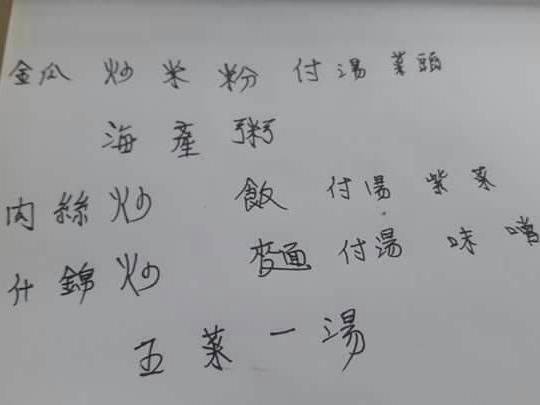 金瓜 炒 米 粉 付 湯 菜頭
海 產 粥
肉 絲 炒 飯 付 湯 紫 菜
什 錦 炒 麵 付 湯 味 噌
五 菜 一 湯